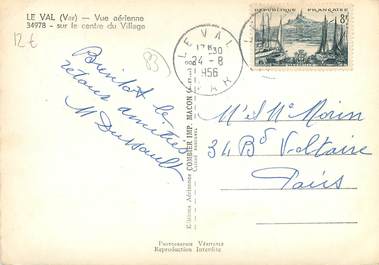 LE VAL (Var) — Vue aérienne
34978 - sur le centre du Village
12 €
83
LE VAL
24 - 8
1956
VAR
POSTES
RÉPUBLIQUE FRANÇAISE
8F
Bientôt le
retour amitiés
M Dussault
Editions Aériennes COMBIER IMP. MACON
M'elle Mc Morin
34 Bd Voltaire
Paris
PHOTOGRAPHIE VÉRITABLE
Reproduction Interdite